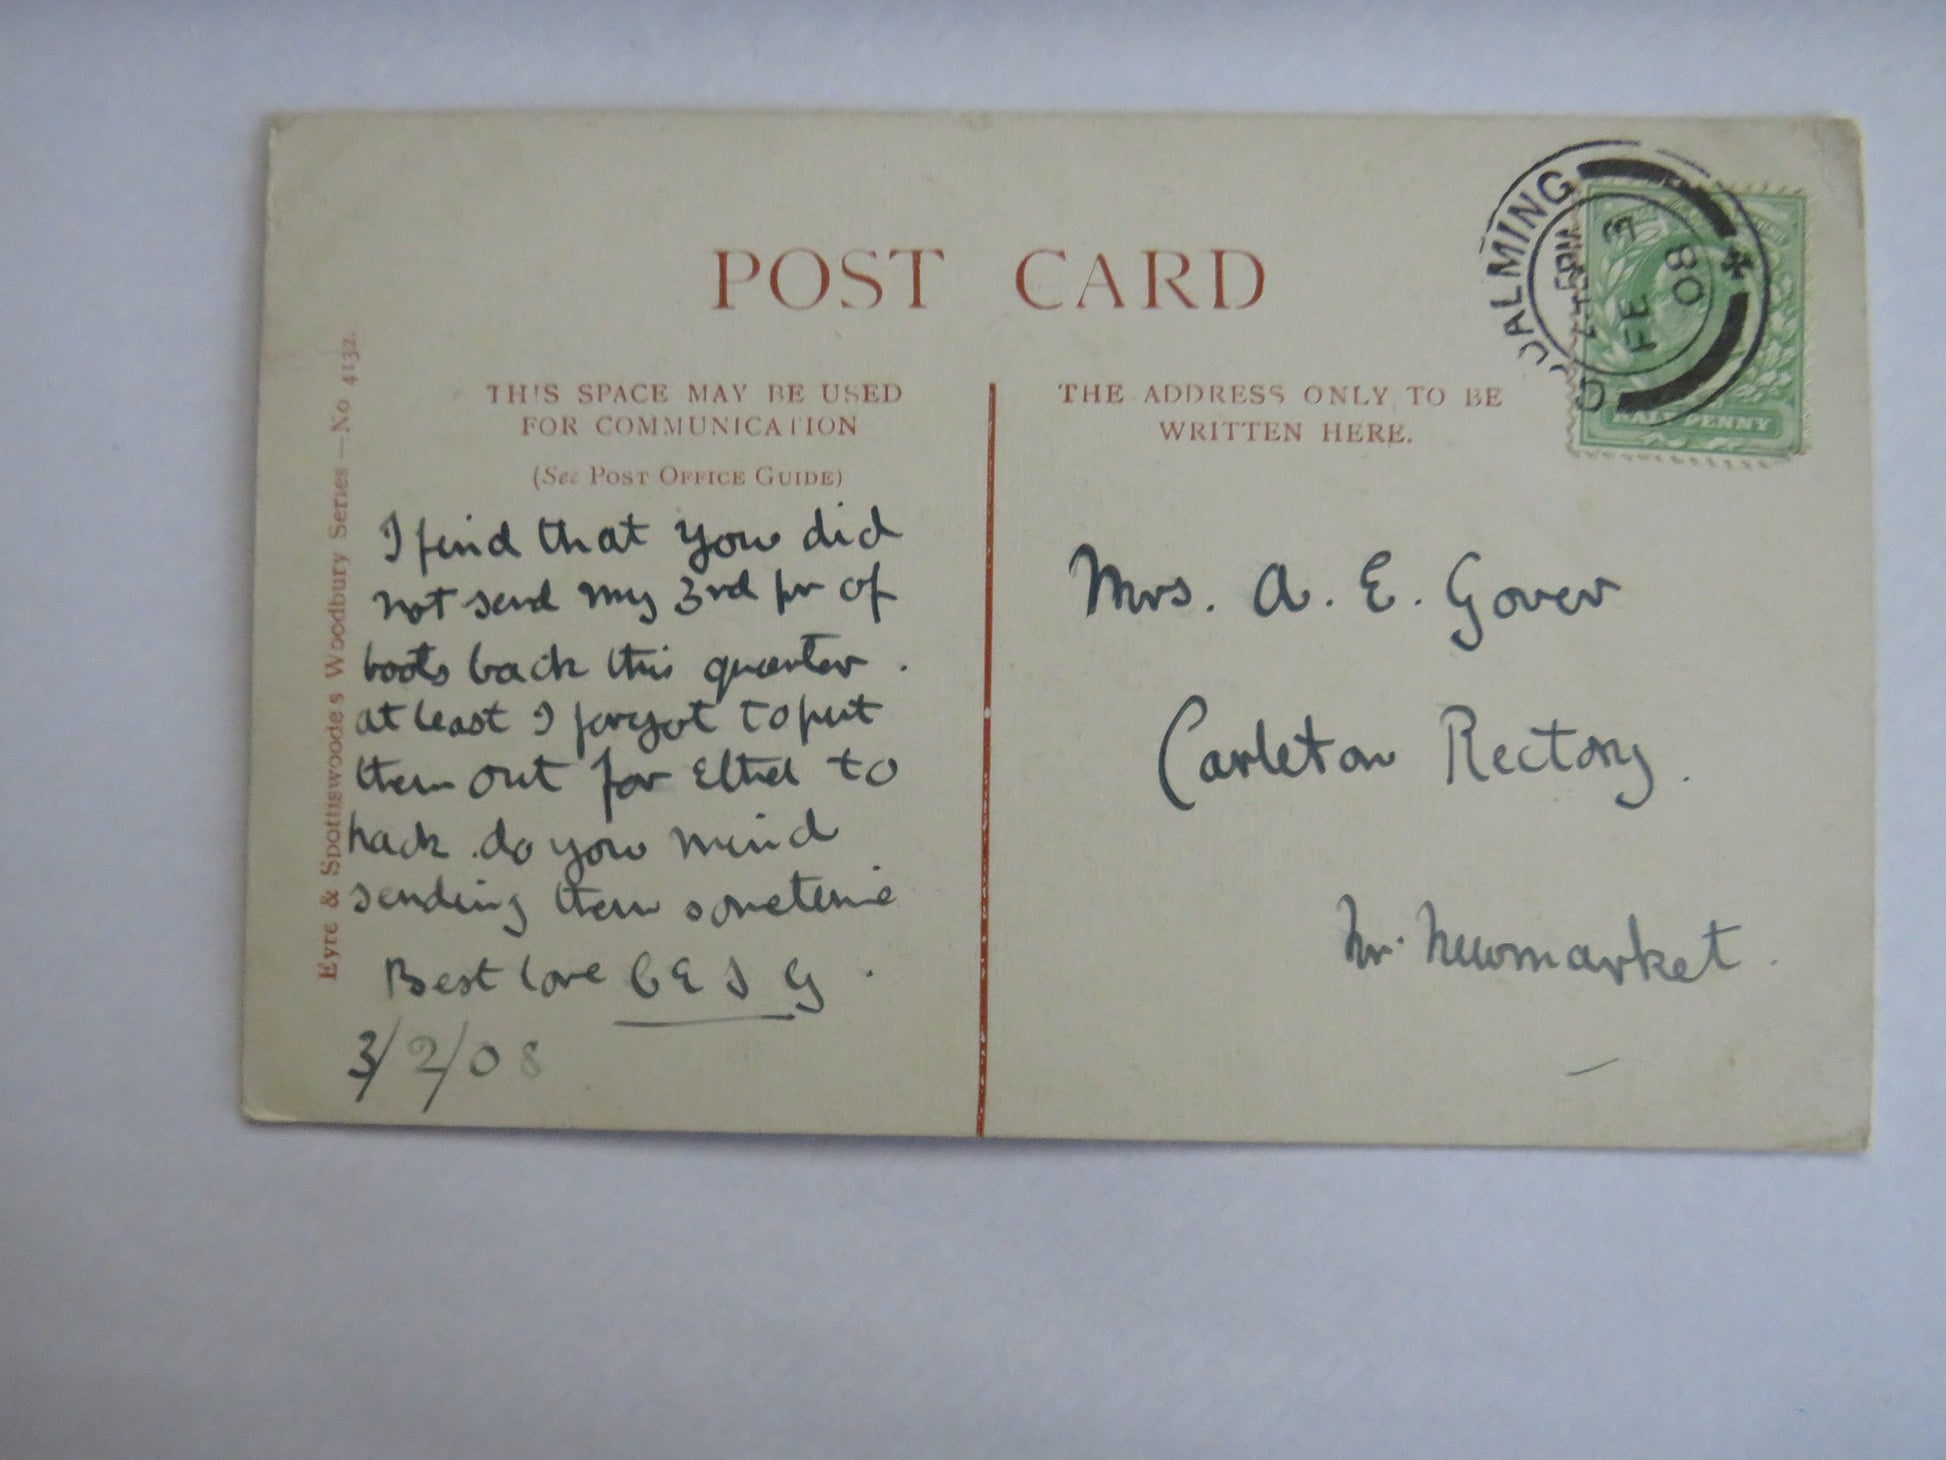 POST CARD
THIS SPACE MAY BE USED
FOR COMMUNICATION
(See POST OFFICE GUIDE)
THE ADDRESS ONLY TO BE
WRITTEN HERE.
Eyre & Spottiswoode's Woodbury Series—No 4132.
I find that you did
not send my 3rd pr of
boots back this quarter.
at least I forgot to put
them out for Ethel to
pack. do you mind
sending them sometime
Best love C E J G.
3/2/08
Mrs. A. E. Gover
Carleton Rectory.
Nr. Newmarket.
DALMING
PM
FE 3
08
HALFPENNY